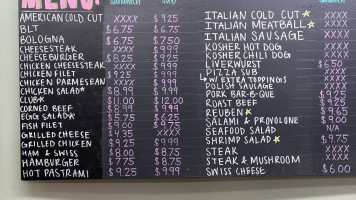 MENU!
SANDWICH SUB
AMERICAN COLD CUT XXXX $9.25
BLT $6.75 $6.75
BOLOGNA $6.75 $7.50
CHEESESTEAK XXXX $9.99
CHEESEBURGER $8.25 $9.25
CHICKEN CHEESESTEAK XXXX $9.99
CHICKEN FILET $9.25 $9.99
CHICKEN PARMESEAN XXXX $9.99
CHICKEN SALAD* $8.99 $9.99
CLUB★ $11.00 $12.00
CORNED BEEF $8.99 $9.99
EGG SALAD★ $5.75 $6.25
FISH FILET $9.00 $9.75
GRILLED CHEESE $4.35 XXXX
GRILLED CHICKEN $9.25 $9.99
HAM & SWISS $8.00 $8.75
HAMBURGER $7.75 $8.75
HOT PASTRAMI $9.25 $9.99
ITALIAN COLD CUT★
ITALIAN MEATBALL★
ITALIAN SAUSAGE XXXX
KOSHER HOT DOG
KOSHER CHILI DOG
LIVERWURST $6.50
PIZZA SUB XXXX
↳ W/ EXTRA TOPPINGS XXXX
POLISH SAUSAGE XXXX
PORK BAR-B-QUE $9.25
ROAST BEEF $9.25
REUBEN★ XXXX
SALAMI & PROVOLONE $9.00
SEAFOOD SALAD N/A
SHRIMP SALAD★ $9.75
STEAK XXXX
STEAK & MUSHROOM XXXX
SWISS CHEESE $6.00